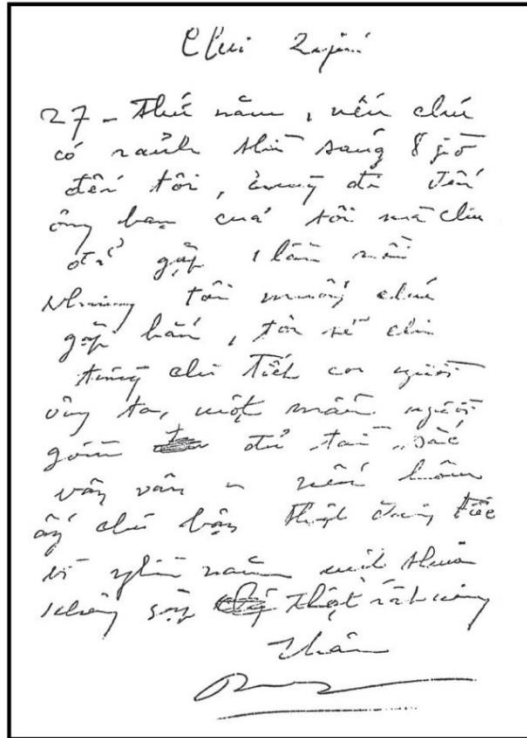 Chú
27 - Thứ năm, nếu chú
có rảnh thì sáng 8 giờ
đến tôi, cùng đi đến
ông bạn của tôi mà chú
đã gặp 1 lần rồi
Nhưng tôi muốn chú
gặp hắn, tôi sẽ cho
từng chi tiết con người
ông ta, một mẫu người
gồm đủ tài sắc
vân vân nếu hôm
ấy chú bận thật đáng tiếc
vì nghìn năm một thuở
không gặp thật
Thân